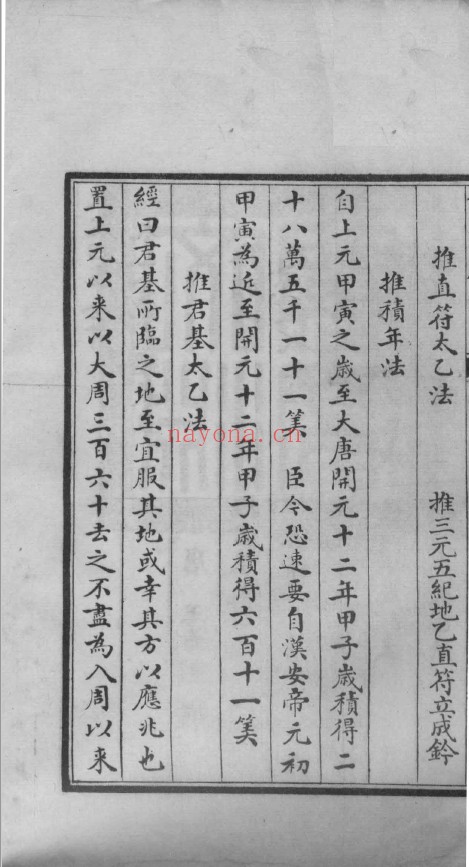 推直符太乙法 推三元五紀地乙直符立成鈐
推積年法
自上元甲寅之歲至大唐開元十二年甲子歲積得二
十八萬五千一十一筭 臣今恐速要自漢安帝元初
甲寅為近至開元十二年甲子歲積得六百十一筭
推君基太乙法
經曰君基所臨之地至宜服其地或幸其方以應兆也
置上元以来以大周三百六十去之不盡為入周以来
nayona.cn